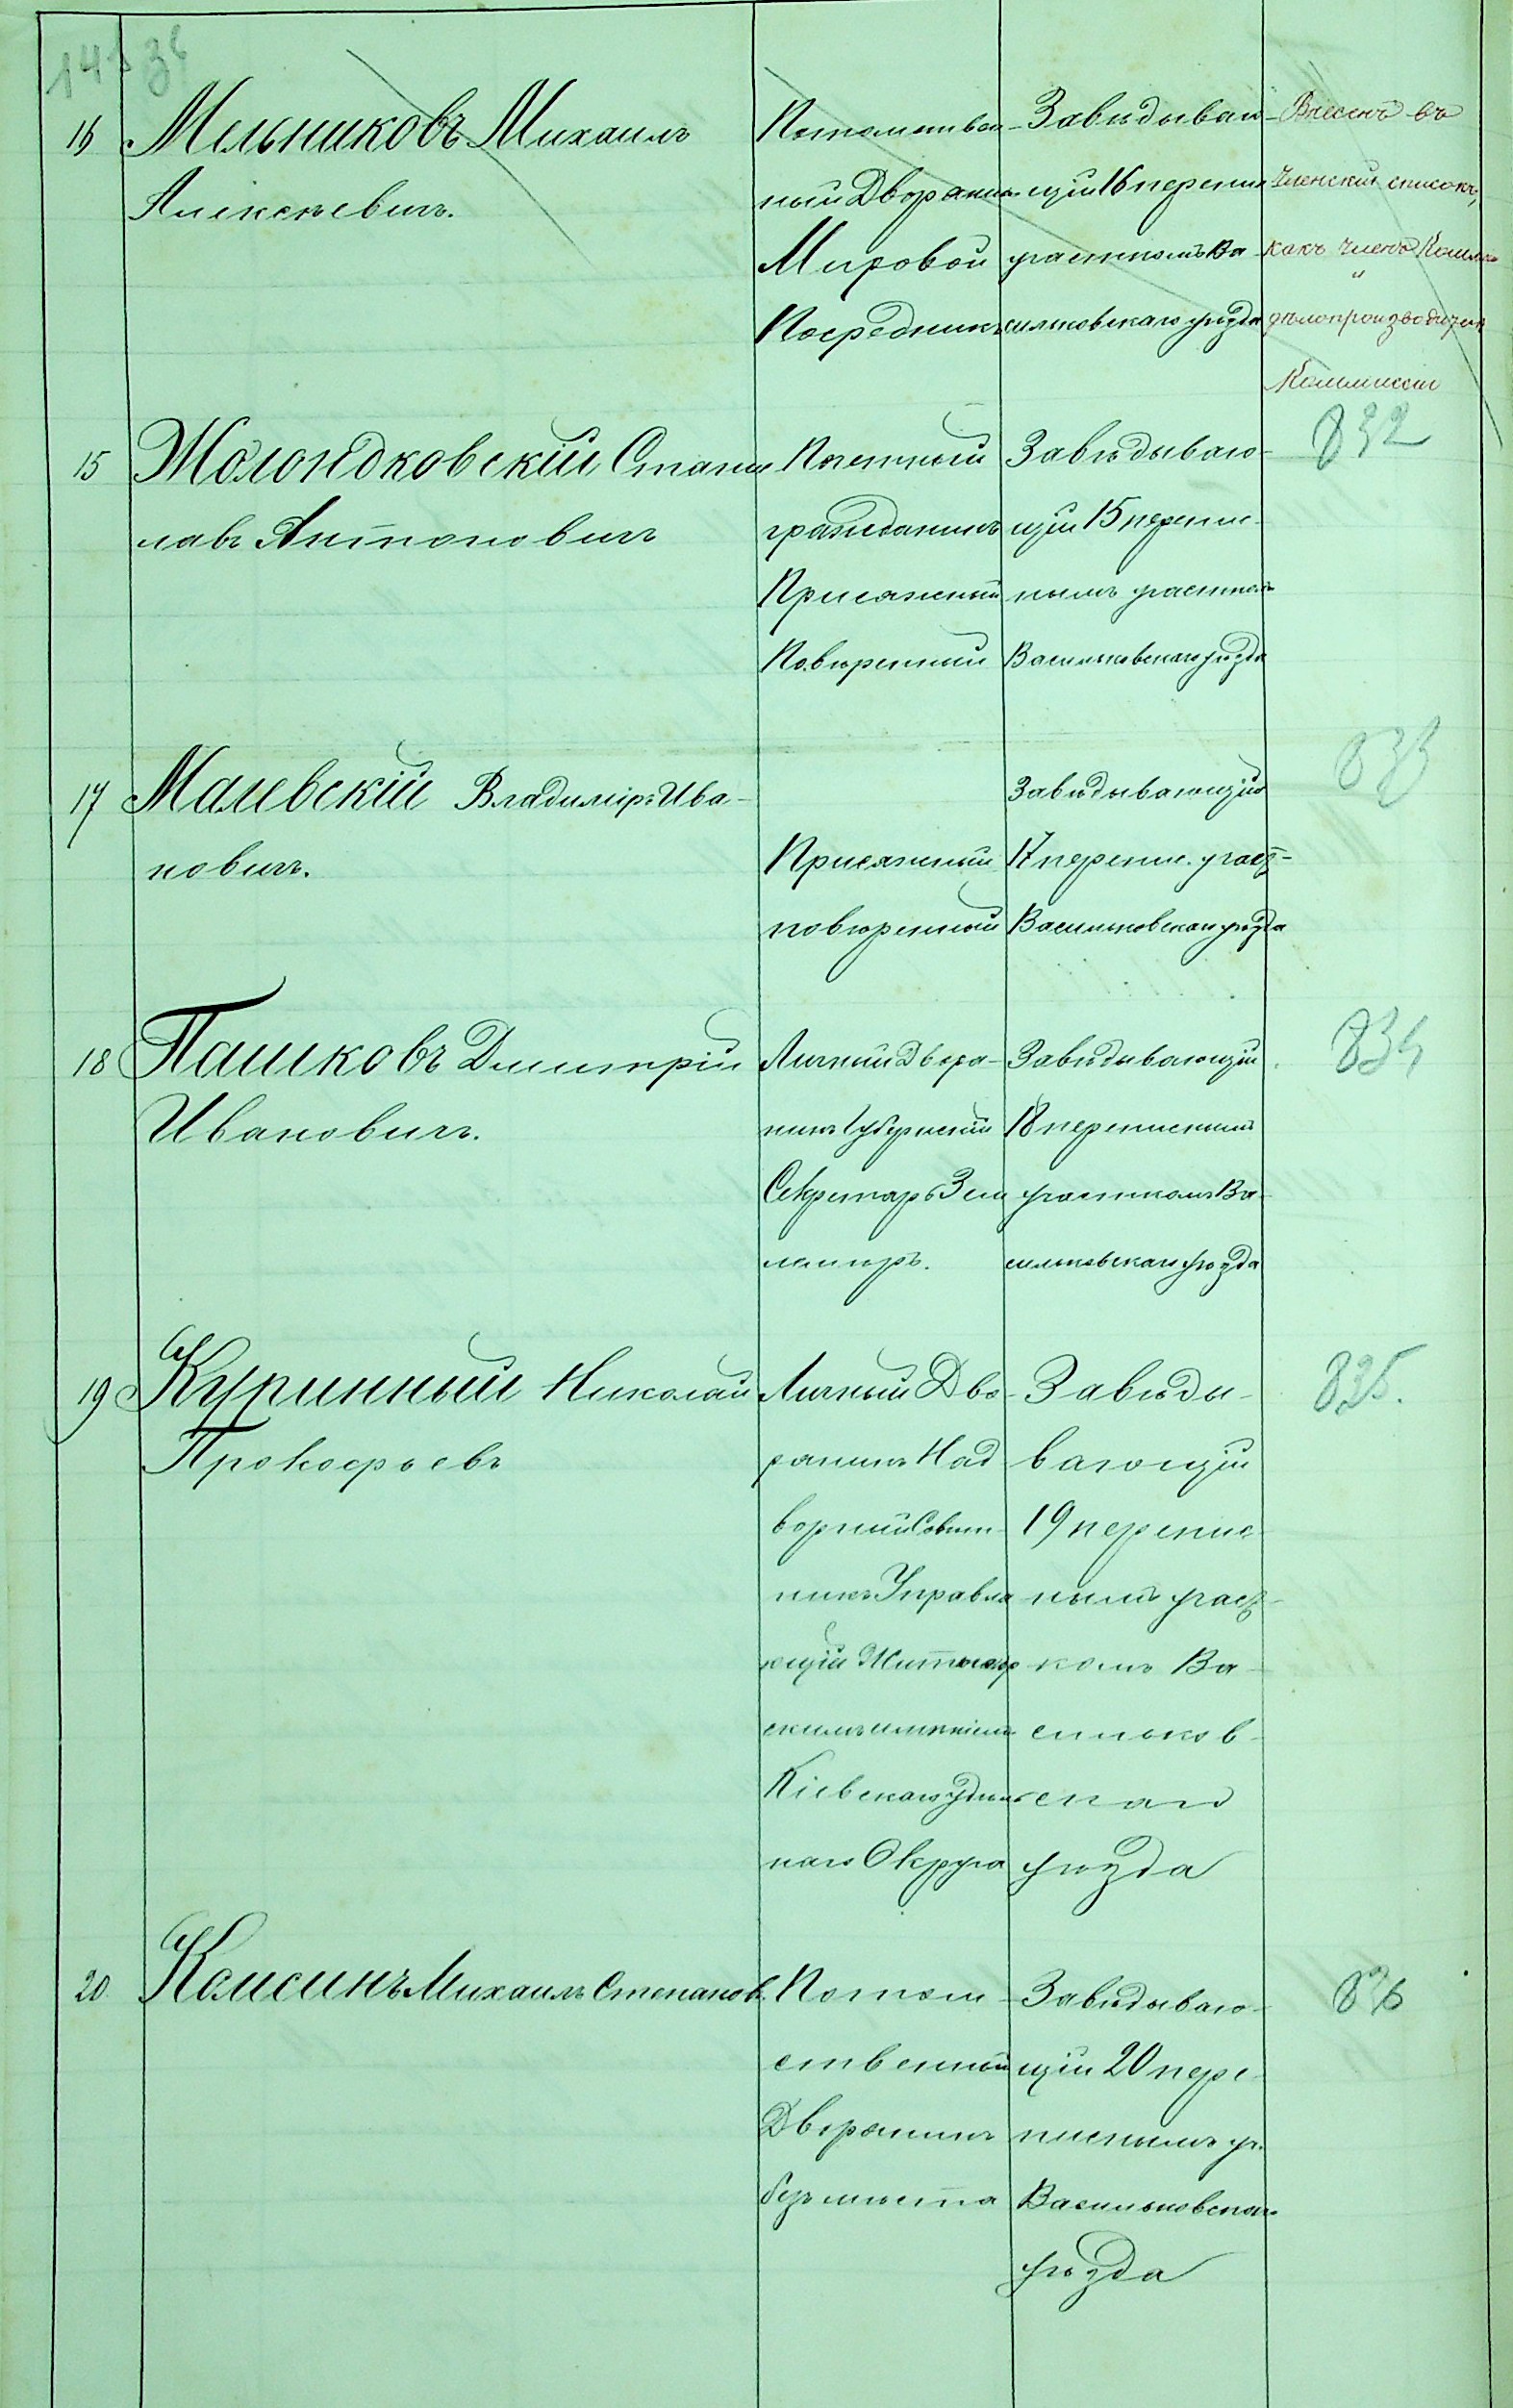 16 Мельниковъ Михаилъ
Алексѣевичъ.
Потомствен-
ный Дворянинъ
Мировой
Посредникъ
Завѣдываю-
щій 16 перепис
участкомъ Ва-
сильковскаго уѣзда
Внесенъ въ
Членскій списокъ,
какъ членъ Коммис
и
дѣлопроизводитель
Коммисіи
15 Жолондковскій Станис
лавъ Антоновичъ
Почетный
гражданинъ
Присяжный
Повѣренный
Завѣдываю-
щій 15 перепис-
нымъ участкомъ
Васильковскаго уѣзда
832
17 Малевскій Владиміръ Ива-
новичъ.
Присяжный
повѣренный
Завѣдывающій
17 перепис. участ-
Васильковскаго уѣзда
833
18 Пашковъ Дмитрій
Ивановичъ.
Личный Дворя-
нинъ Губернскій
Секретарь Зем
лемѣръ.
Завѣдывающій
18 переписнымъ
участкомъ Ва-
сильковскаго уѣзда
834
19 Куринный Николай
Прокофьевъ
Личный Дво-
рянинъ Над
ворный Совѣт-
никъ Управля
ющій Житногор
скимъ имѣніемъ
Кіевскаго Удѣль
наго Округа
Завѣды-
вающій
19 перепис
нымъ участ-
комъ Ва-
сильков-
скаго
уѣзда
835.
20 Комсинъ Михаилъ Степанов.
Потом-
ственный
Дворянинъ
безъ мѣста
Завѣдываю-
щій 20 пере-
писнымъ уч.
Васильковскаго
уѣзда
836